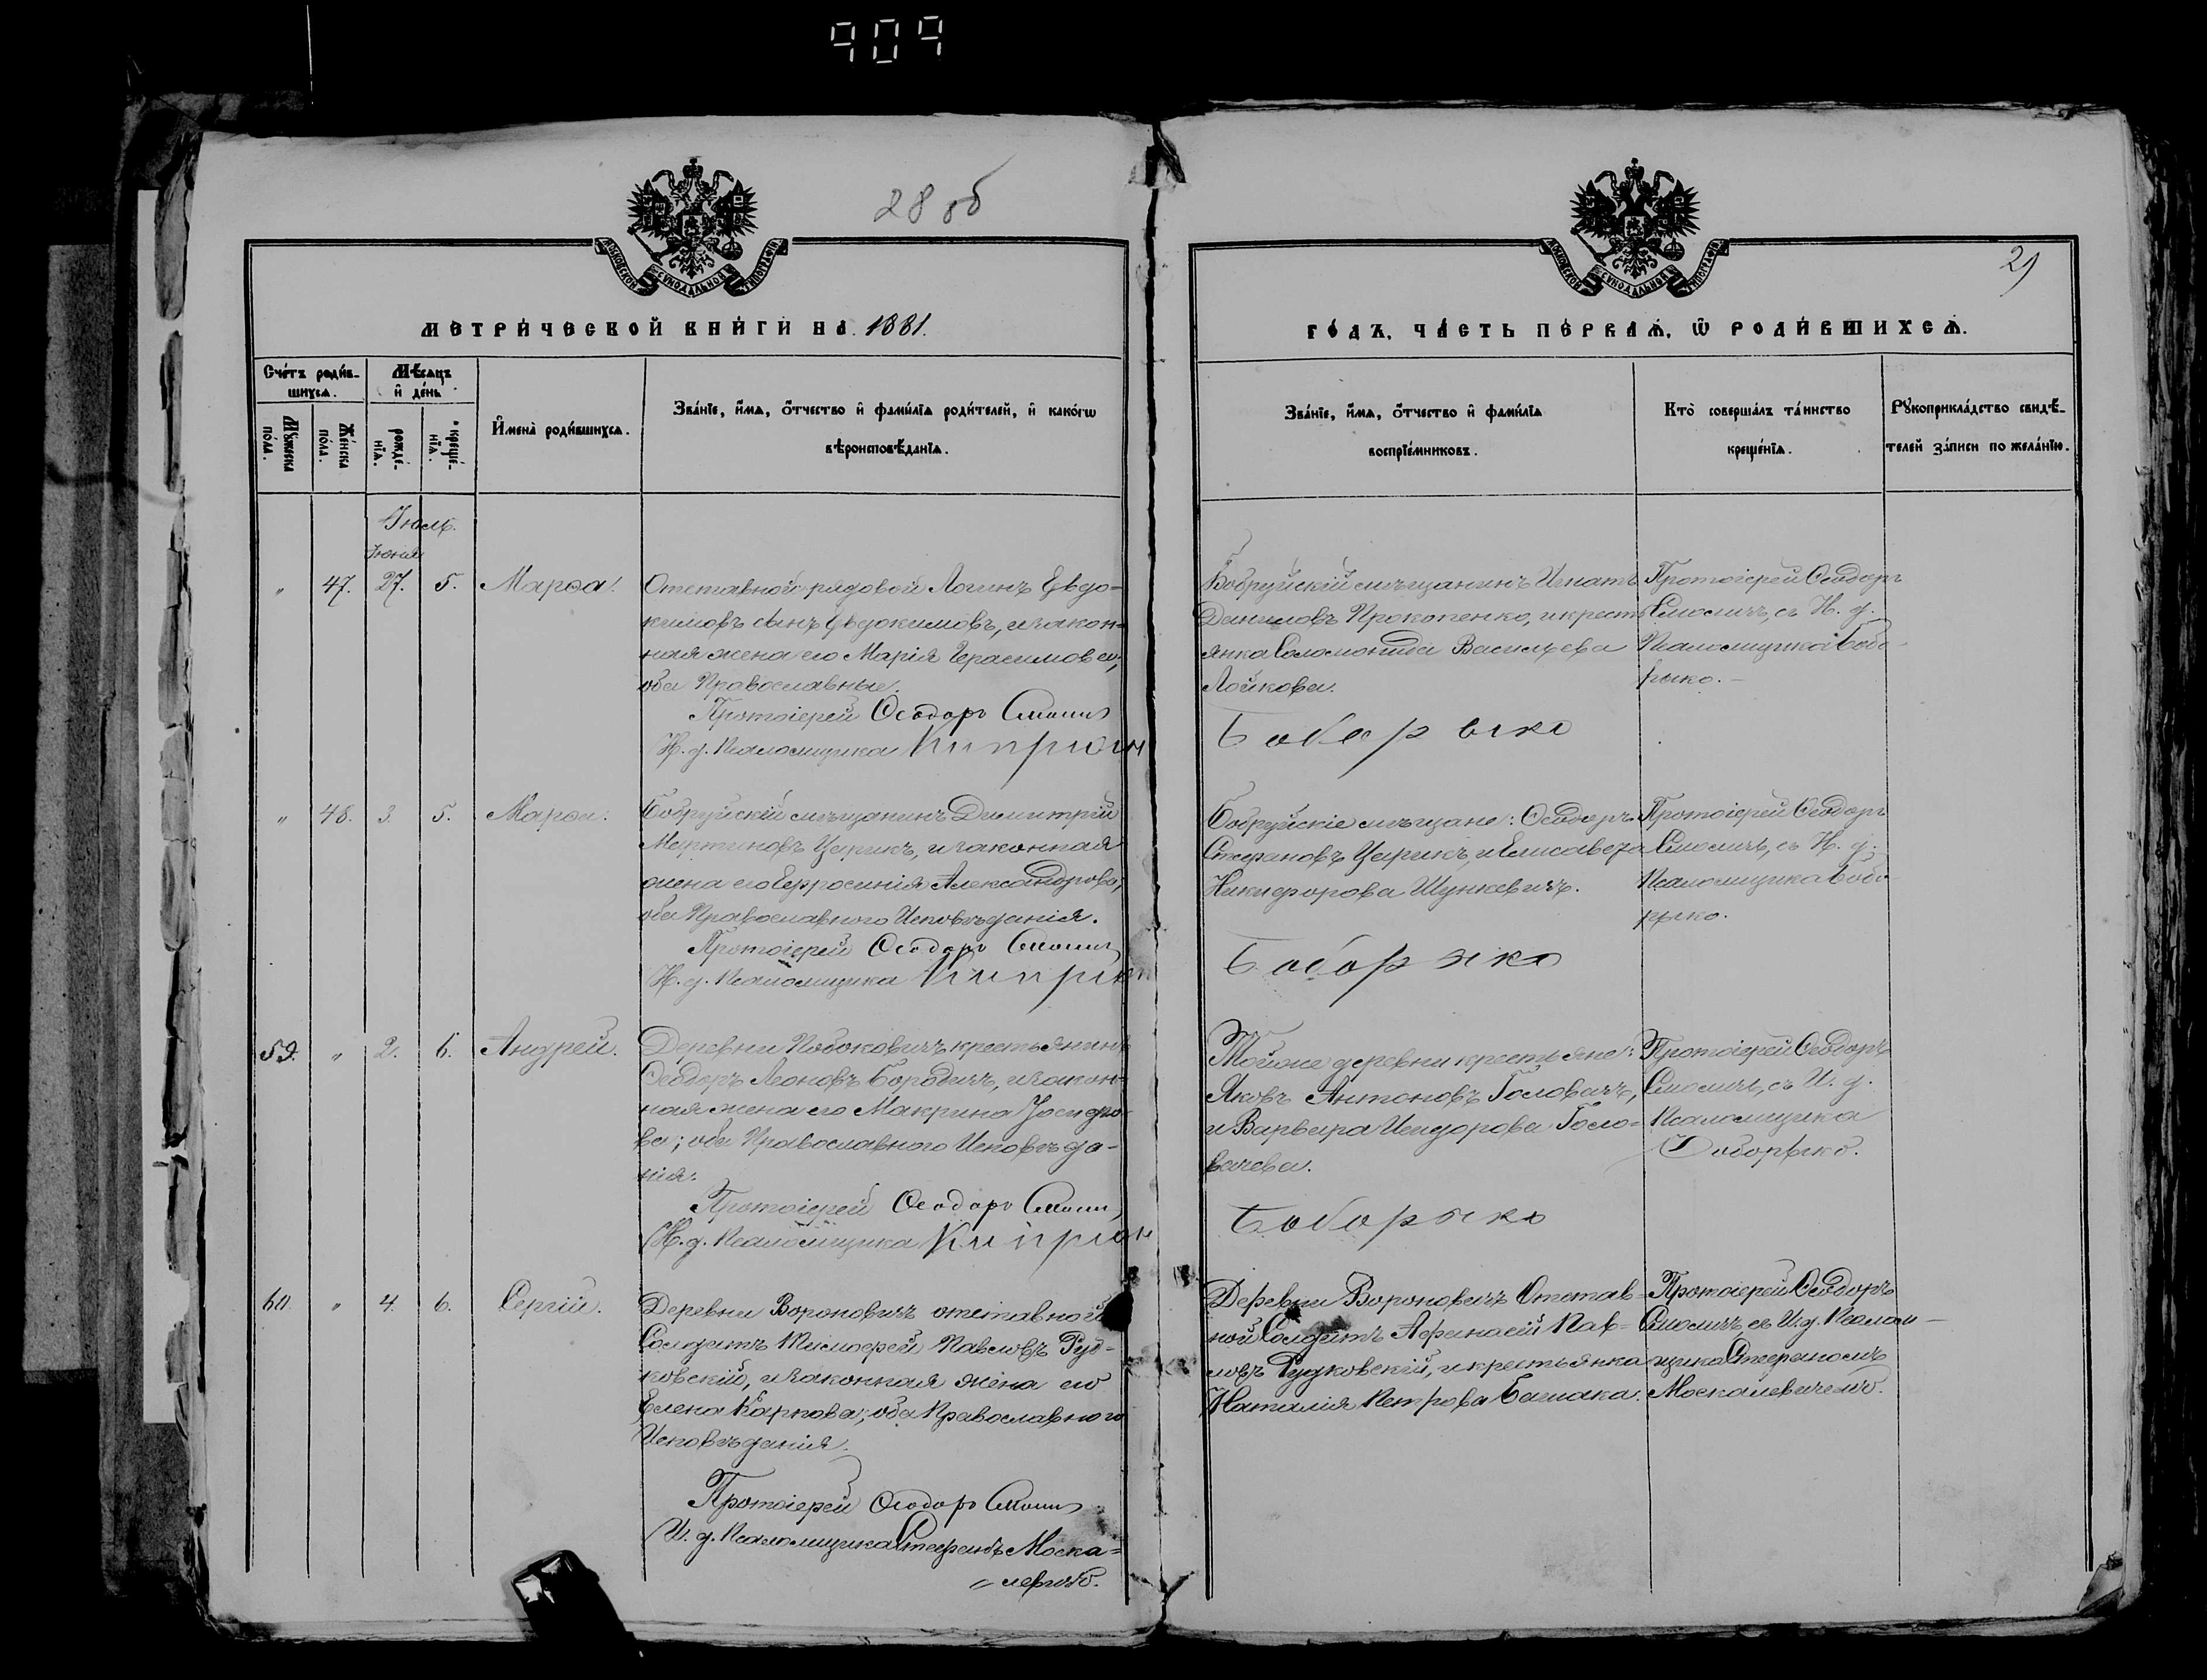 909
28 об
МОСКОВСКОЙ СѴНОДАЛЬНОЙ ТИПОГРАФІИ
МЕТРИ́ЧЕСКОЙ КНИ́ГИ НА 1881.
Сче́тъ роди́в-
шихсѧ.
Мѣ́сѧцъ
и҆ де́нь
Мꙋ́жеска
по́ла.
Же́нска
по́ла.
рожде́-
нїѧ.
креще́-
нїѧ.
И҆мена̀ роди́вшихсѧ.
Зва́нїе, и҆́мѧ, ѻ҆́тчество и҆ фамѝлїѧ роди́телей, и҆ како́гѡ
вѣроисповѣ́данїѧ.
Іюль.
Іюня
„ 47. 27. 5. Марѳа.
Отставной рядовой Логинъ Евдо-
кимовъ сынъ Евдокимовъ, и закон-
ная жена его Марія Герасимова;
оба Православные.
Протоіерей Ѳеодоръ Смолич
И. д. Псаломщика Кипріан
„ 48. 3. 5. Марѳа.
Бобруйскій мѣщанинъ Димитрій
Мартиновъ Царикъ, и законная
жена его Евфросинія Александрова;
оба Православного Исповѣданія.
Протоіерей Ѳеодоръ Смолич
И. д. Псаломщика Кипріан
59. „ 2. 6. Андрей.
Деревни крестьянинъ
Ѳеодоръ Леоновъ Бородичъ, и закон-
ная жена его Макрина Іосифо-
ва; оба Православного Исповѣда-
нія.
Протоіерей Ѳеодоръ Смолич
И. д. Псаломщика Кипріан
60. „ 4. 6. Сергій.
Деревни Вороновичъ отставной
Солдатъ Тимоѳей Павловъ Руд-
ковскій, и законная жена его
Елена Карпова; оба Православного
Исповѣданія.
Протоіерей Ѳеодоръ Смолич
И. д. Псаломщика Стефанъ Моска-
левичъ.
29
МОСКОВСКОЙ СѴНОДАЛЬНОЙ ТИПОГРАФІИ
ГО́ДЪ, ЧА́СТЬ ПЕ́РВАѦ, Ѡ҆ РОДИ́ВШИХСѦ.
Зва́нїе, и҆́мѧ, ѻ҆́тчество и҆ фамѝлїѧ
воспрїе́мниковъ.
Кто̀ соверша́лъ та́инство
креще́нїѧ.
Рꙋкоприкла́дство свидѣ́-
телей за́писи по жела́нїю.
Бобруйскій мѣщанинъ Игнатъ
Даниловъ Прокопенко, и кресть-
янка Соломонида Васильева
Лойкова.
Боборыко
Протоіерей Ѳеодоръ
Смоличъ, съ И. д.
Псаломщика Бобо-
рыко.
Бобруйскіе мѣщане: Ѳеодоръ
Стефановъ Царикъ, и Елисавета
Никифорова Шункевичъ.
Боборыко
Протоіерей Ѳеодоръ
Смоличъ, съ И. д.
Псаломщика Бобо-
рыко.
Тойже деревни крестьяне:
Яковъ Антоновъ Головачъ,
и Варвара Исидорова Голо-
вачева.
Боборыко
Протоіерей Ѳеодоръ
Смоличъ, съ И. д.
Псаломщика
Боборыко.
Деревни Вороновичъ Отстав-
ной Солдатъ Афанасій Пав-
ловъ Рудковскій, и крестьянка
Наталія Петрова Башака.
Протоіерей Ѳеодоръ
Смоличъ съ И. д. Псалом-
щика Стефаномъ
Москалевичемъ.